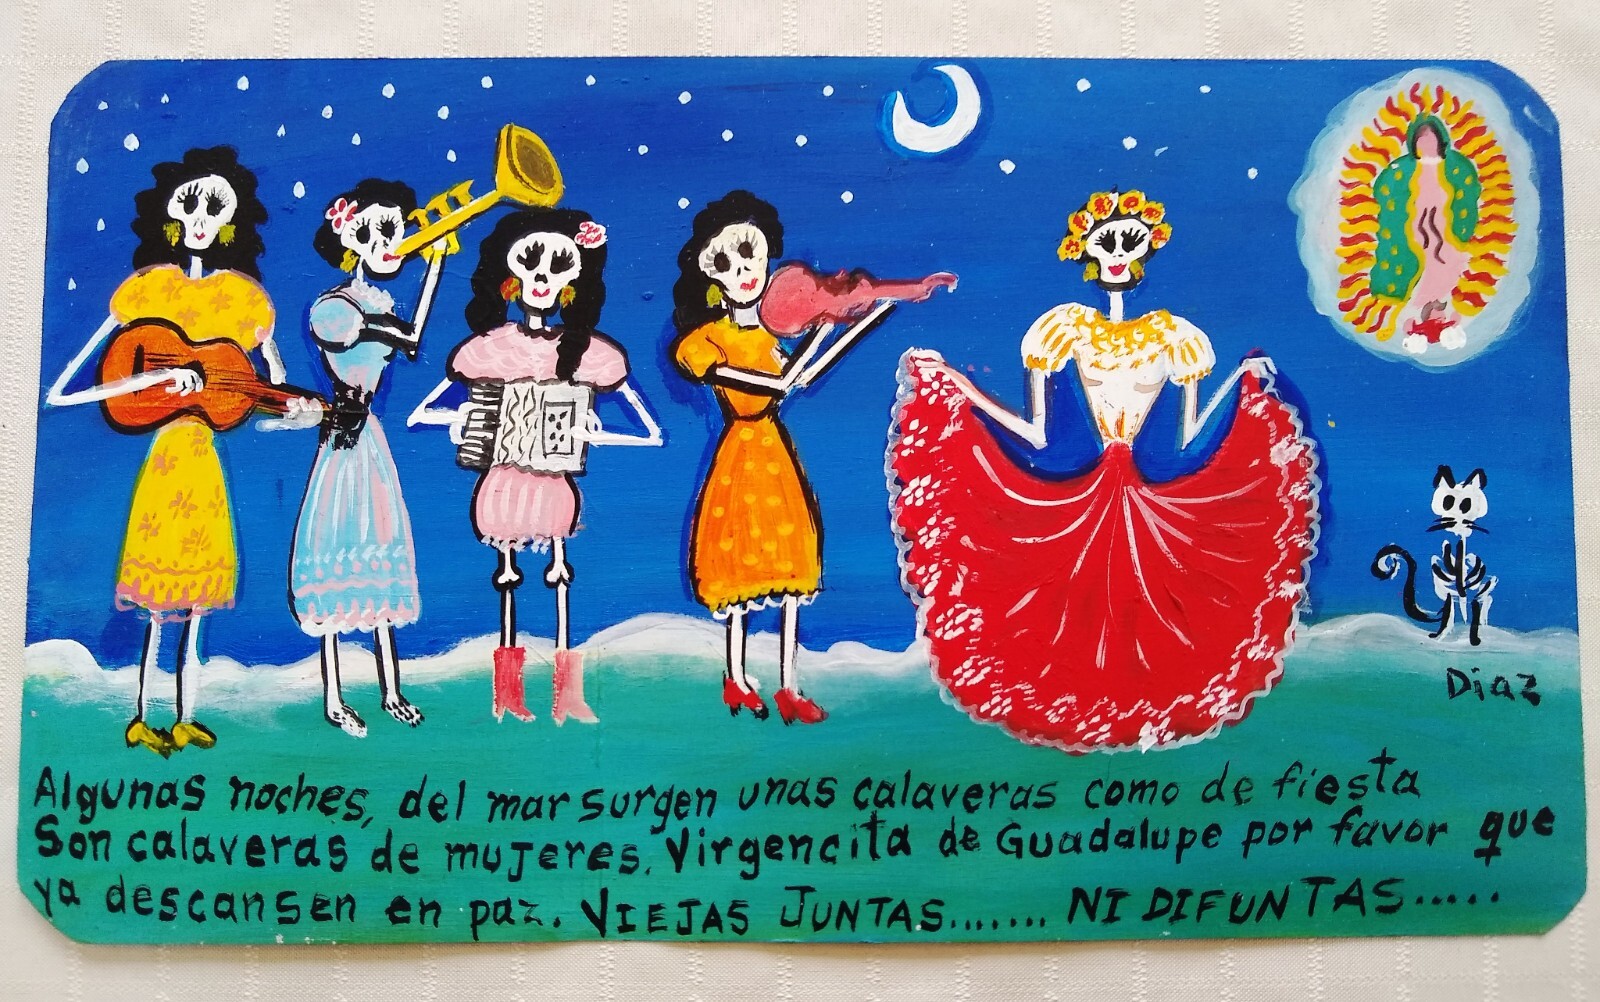 Diaz
Algunas noches, del mar surgen unas calaveras como de fiesta
Son calaveras de mujeres. Virgencita de Guadalupe por favor que
ya descansen en paz. VIEJAS JUNTAS....... NI DIFUNTAS.....